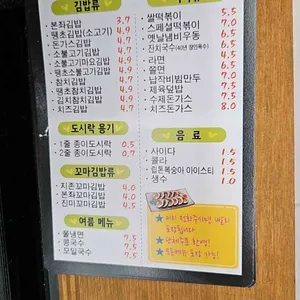 김밥류
· 본좌김밥 3.7
· 땡초김밥(소고기) 4.9
· 돈가스김밥 4.9
· 소불고기김밥 4.9
· 소불고기마요김밥 4.9
· 땡초소불고기김밥 4.9
· 참치김밥 4.9
· 땡초참치김밥 4.9
· 김치참치김밥 4.9
· 치즈김밥 4.7
도시락 용기
· 1줄 종이도시락 0.5
· 2줄 종이도시락 0.7
꼬마김밥류
· 지존꼬마김밥 4.0
· 본좌꼬마김밥 4.0
· 진미꼬마김밥 4.5
여름 메뉴
· 물냉면 7.5
· 콩국수 7.5
· 모밀국수 7.5
· 쌀떡볶이 5.5
· 스페셜떡볶이 7.0
· 옛날냄비우동 6.5
· 잔치국수
· 라면
· 쫄면
· 납작비빔만두 7.0
· 제육덮밥 7.5
· 수제돈가스 7.5
· 치즈돈가스 8.0
음 료
· 사이다 1.5
· 콜라 1.5
· 립톤복숭아 아이스티 1.5
· 생수 1.0